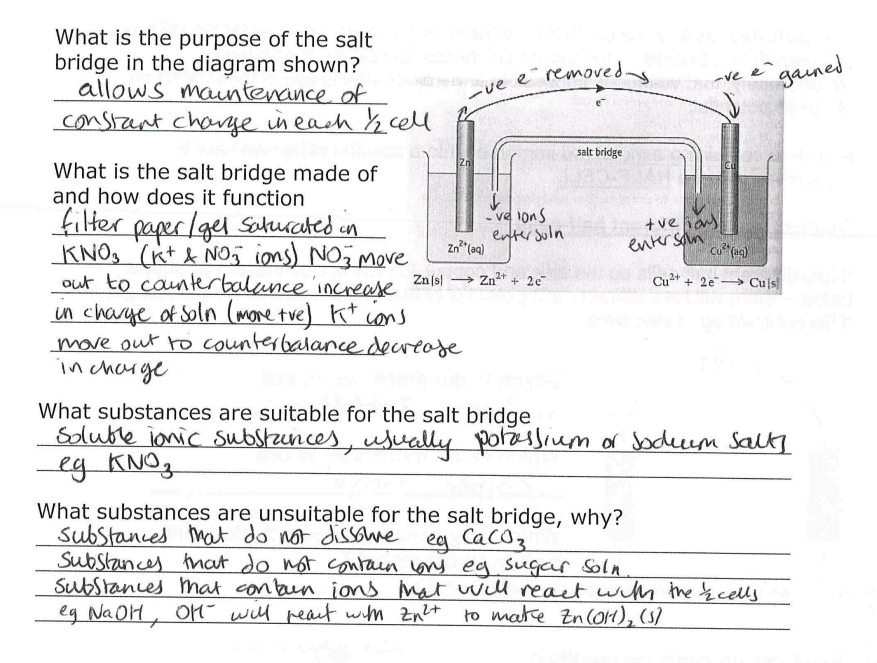 What is the purpose of the salt
bridge in the diagram shown?
allows maintenance of
constant charge in each ½ cell
-ve e- removed
-ve e- gained
e⁻
salt bridge
Zn
Cu
-ve ions
enter soln
+ve ions
enter soln
Zn²⁺(aq)
Cu²⁺(aq)
Zn(s) → Zn²⁺ + 2e⁻
Cu²⁺ + 2e⁻ → Cu(s)
What is the salt bridge made of
and how does it function
filter paper/gel saturated in
KNO₃ (K⁺ & NO₃⁻ ions) NO₃⁻ move
out to counterbalance increase
in charge of soln (more +ve) K⁺ ions
move out to counterbalance decrease
in charge
What substances are suitable for the salt bridge
Soluble ionic substances, usually potassium or sodium salts
eg KNO₃
What substances are unsuitable for the salt bridge, why?
Substances that do not dissolve eg CaCO₃
Substances that do not contain ions eg sugar soln.
Substances that contain ions that will react with the ½ cells
eg NaOH, OH⁻ will react with Zn²⁺ to make Zn(OH)₂(s)